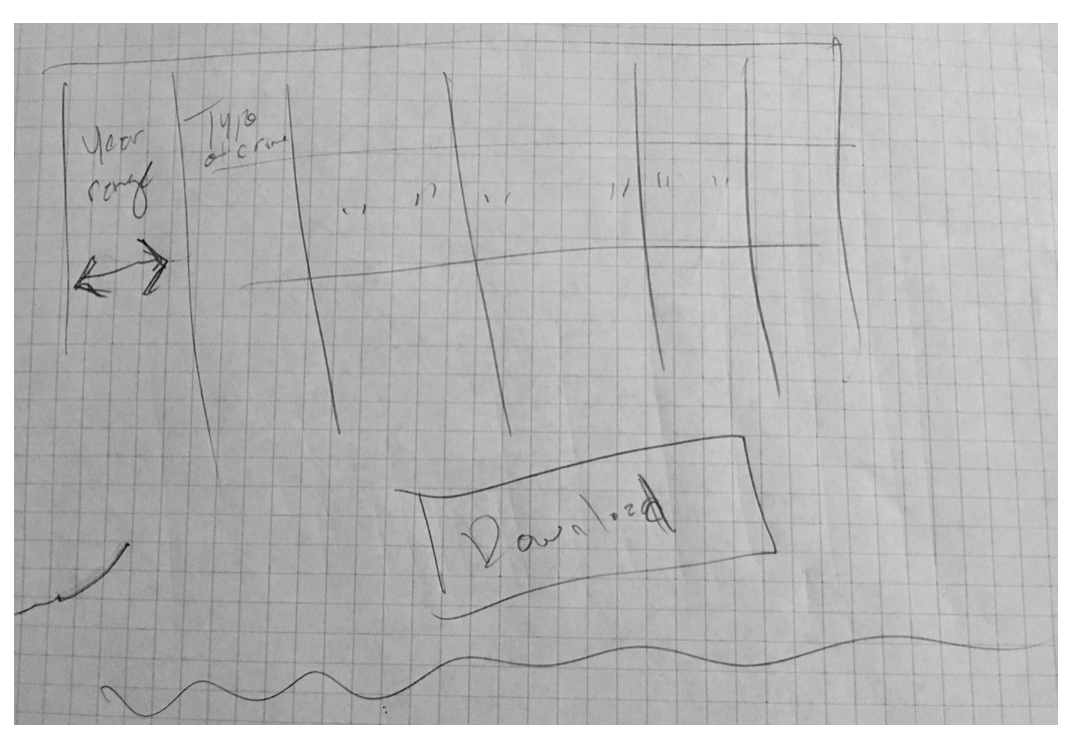 Year
range
Type
of crime
" " " " " "
Download